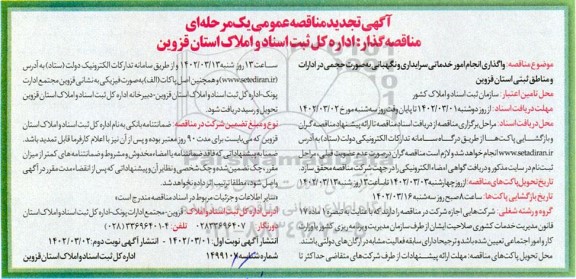 آگهی تجدید مناقصه عمومی یک مرحله‌ای
مناقصه گذار: اداره کل ثبت اسناد و املاک استان قزوین
موضوع مناقصه: واگذاری انجام امور خدماتی سرایداری و نگهبانی به صورت حجمی در ادارات
و مناطق ثبتی استان قزوین
محل تامین اعتبار: سازمان ثبت اسناد و املاک کشور
مهلت دریافت اسناد: از روز دوشنبه ۱۴۰۲/۰۳/۰۱ تا پایان وقت روز سه شنبه مورخ ۱۴۰۲/۰۳/۰۲
محل دریافت اسناد: مراحل برگزاری مناقصه از دریافت اسناد مناقصه تا ارائه پیشنهاد مناقصه گران
و بازگشایی پاکت‌ها از طریق درگاه سامانه تدارکات الکترونیکی دولت (ستاد) به آدرس
www.setadiran.ir انجام خواهد شد و لازم است مناقصه گران در صورت عدم عضویت قبلی، مراحل
ثبت نام در سایت مذکور و دریافت گواهی امضاء الکترونیکی را جهت شرکت در مناقصه محقق سازند
تاریخ تحویل پاکت‌های مناقصه: از روز چهارشنبه ۱۴۰۲/۰۳/۰۳ تا ساعت ۱۳ روز شنبه ۱۴۰۲/۰۳/۱۳
تاریخ بازگشایی پاکت‌ها: ساعت ۸ صبح روز سه شنبه ۱۴۰۲/۰۳/۱۶
گروه و رشته شغلی: شرکت‌هایی اجازه شرکت در مناقصه را دارند که با عنایت به تبصره ۱ ماده ۱۷
قانون مدیریت خدمات کشوری صلاحیت ایشان از طرف سازمان مدیریت و برنامه ریزی کشور یا وزارت
کار و امور اجتماعی تعیین شده باشد و ترجیحا دارای سابقه فعالیت مشابه در ارگان های دولتی باشند
محل تحویل پاکت های مناقصه: مهلت ارائه پیشنهادات از طرف شرکت‌های متقاضی حداکثر تا
ساعت ۱۳ روز شنبه ۱۴۰۲/۰۳/۱۳ و از طریق سامانه تدارکات الکترونیک دولت (ستاد) به آدرس
(www.setediran.ir) و همچنین اصل پاکت (الف) به صورت فیزیکی به نشانی قزوین مجتمع ادارات
پونک اداره کل ثبت اسناد و املاک استان قزوین-دبیرخانه اداره کل ثبت اسناد و املاک استان قزوین
تحویل و رسید دریافت شود.
نوع و مبلغ تضمین شرکت در مناقصه: ضمانتنامه بانکی به نام اداره کل ثبت اسناد و املاک استان
قزوین که می بایست برای مدت ۹۰ روز معتبر بوده و پس از آن نیز با اعلام کارفرما قابل تمدید باشد.
ضمنا به پیشنهادهای که فاقد ضمانتنامه یا امضاء مخدوش و مشروط و ضمانتنامه های کمتر از میزان
مقرر، چک تضمین شده و چک شخصی و نظایر آن و پیشنهاداتی که پس از انقضاء مدت مقرر در آگهی
واصل شود، مطلقا ترتیب اثر داده نخواهد شد.
«سایر اطلاعات و جزئیات مربوط در اسناد مناقصه مندرج است»
آدرس اداره کل ثبت اسناد و املاک: قزوین-مجتمع ادارات پونک-اداره کل ثبت اسناد و املاک استان قزوین
دورنگار: ۰۲۸۳۳۶۹۶۴۰۷ تلفن: ۴-۰۲۸۳۳۶۹۶۴۰۱
انتشار آگهی نوبت اول: ۱۴۰۲/۰۳/۰۱ - انتشار آگهی نوبت دوم: ۱۴۰۲/۰۳/۰۲
شماره شناسه: ۱۴۹۹۱۰۷ اداره کل ثبت اسناد و املاک استان قزوین